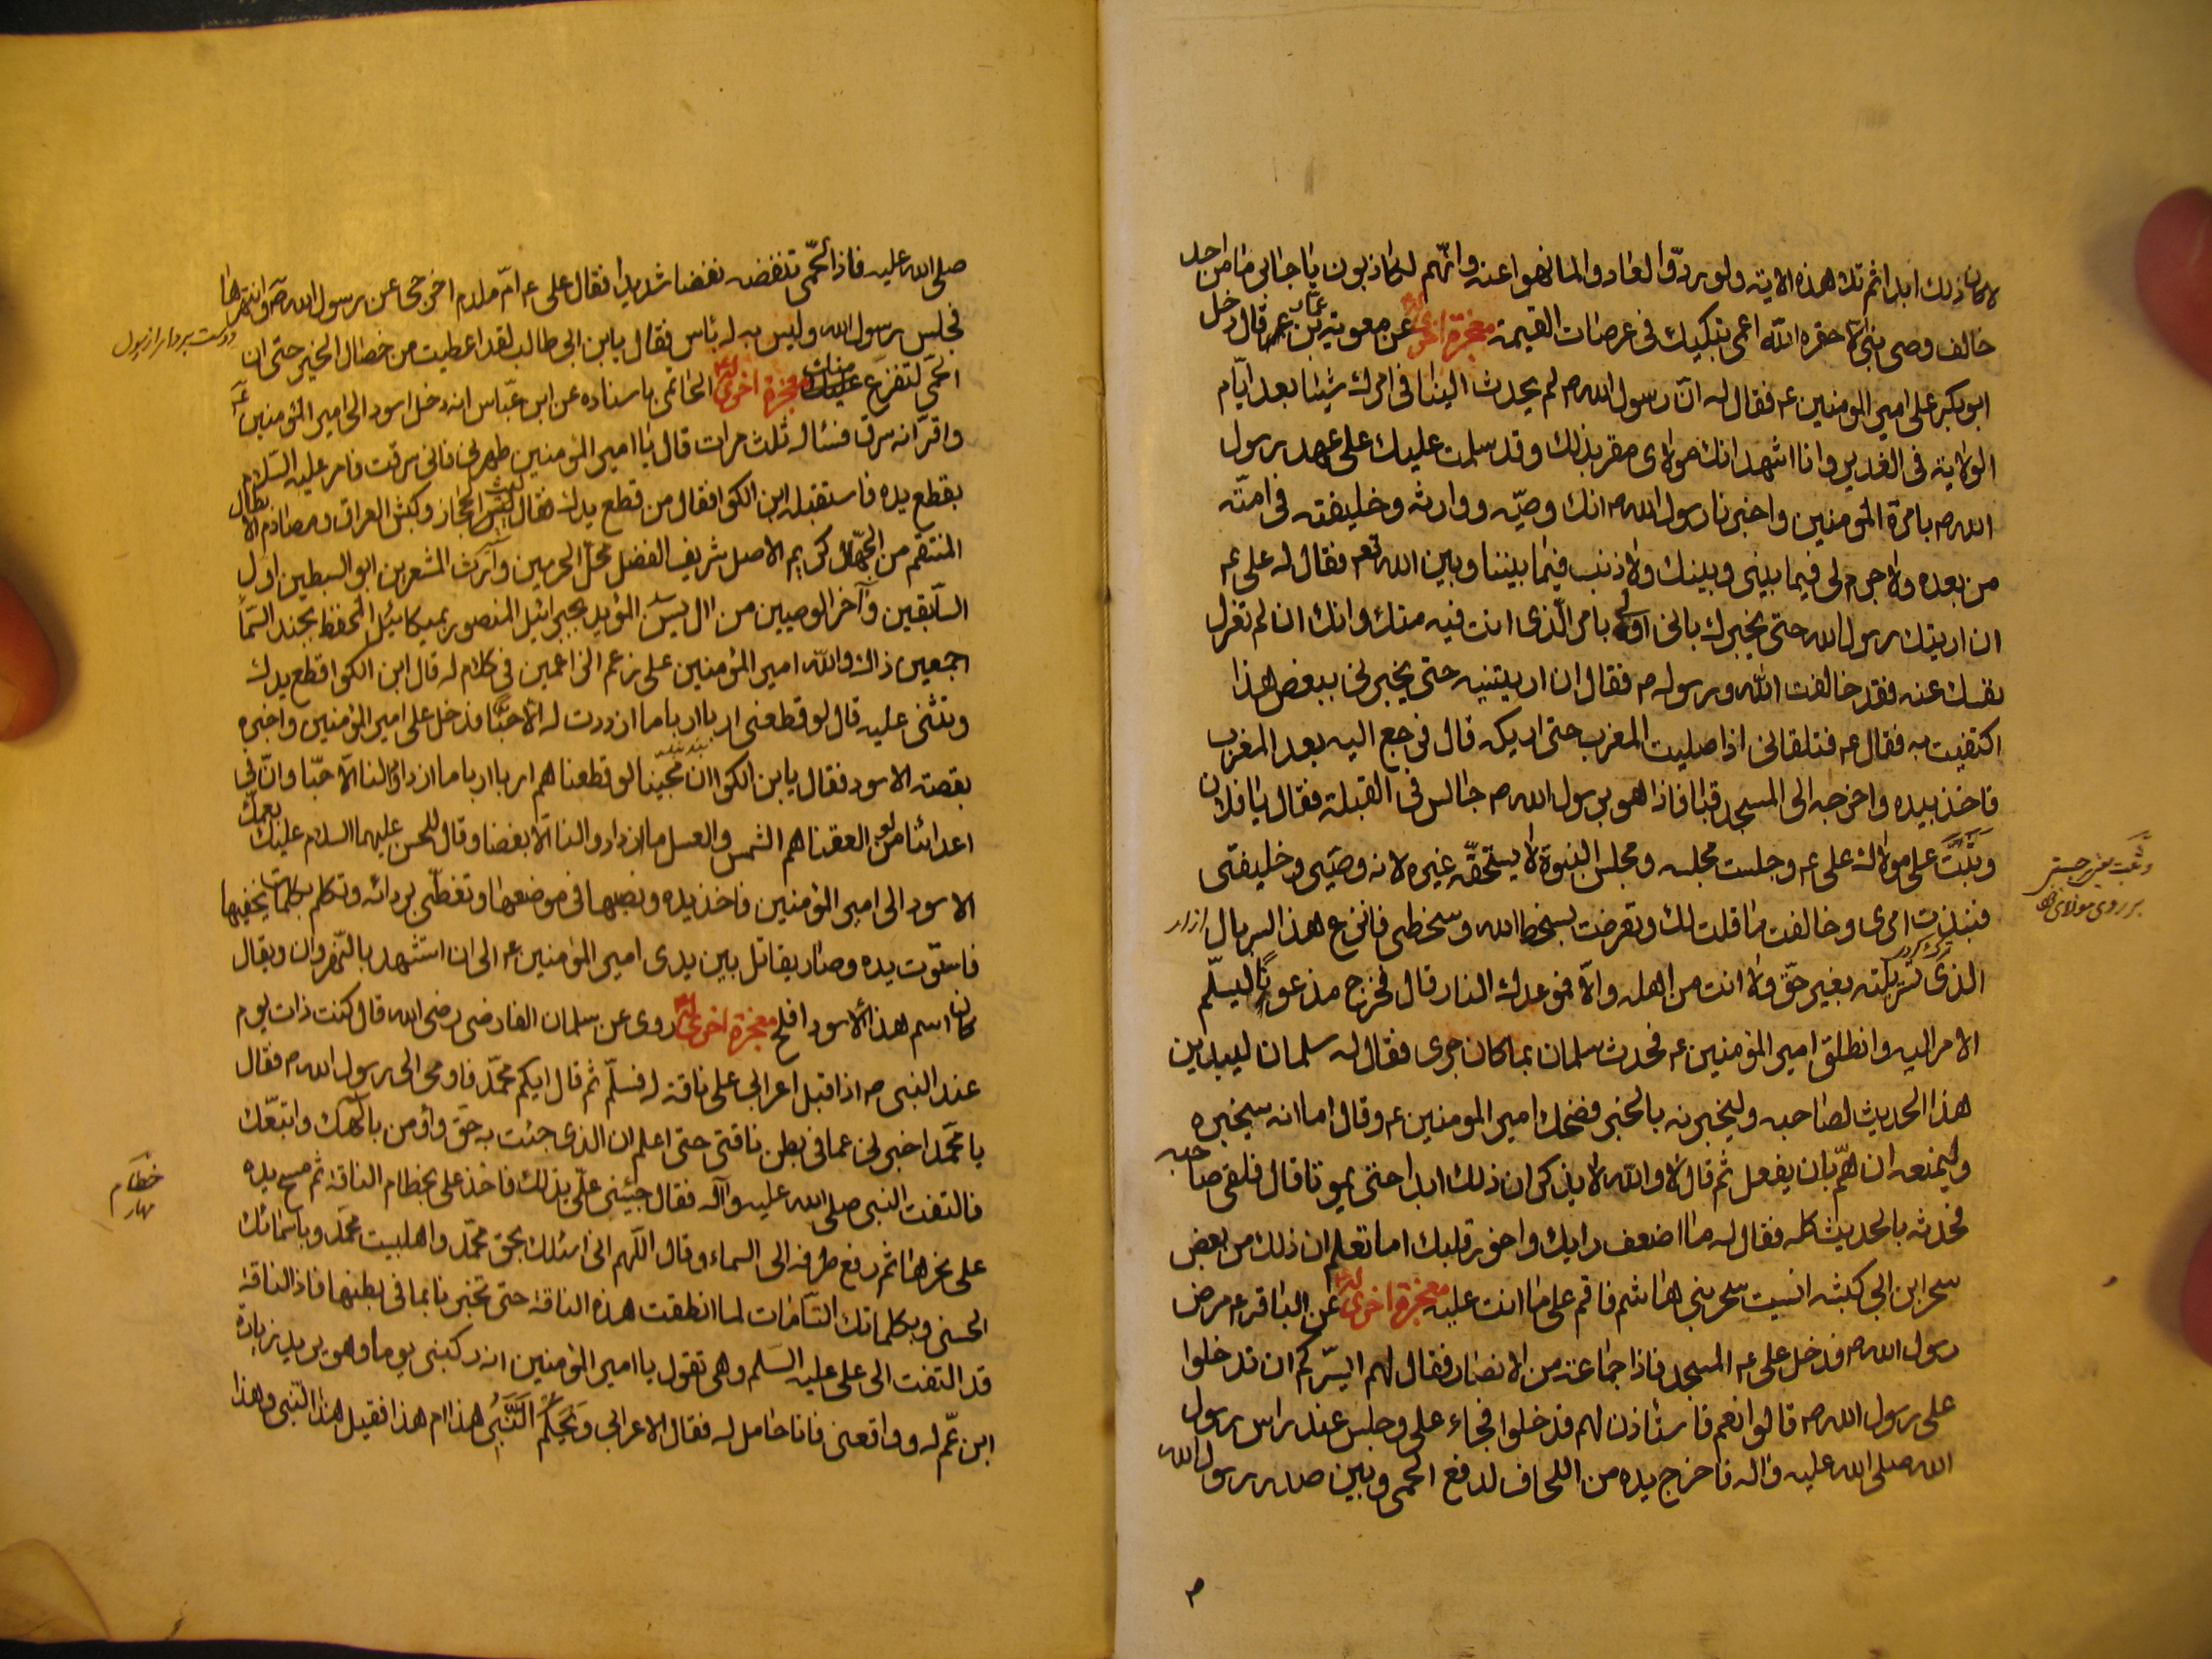 لا كان ذلك ابدا ثم تلا هذه الاية ولو ردّوا لعادوا لما نهوا عنه وانّهم لكاذبون يا جابر ما من احد
خالف وصى نبىّ الا حشره الله اعمى يتكبكب فى عرصات القيمة معجزة اخرى له عن معوية بن عمّار قال دخل
ابو بكر على امير المومنين ع فقال له انّ رسول الله ص لم يحدث الينا فى امرك شيئا بعد ايّام
الولاية فى الغدير وانا اشهد انك مولاى مقر بذلك وقد سلمت عليك على عهد رسول
الله ص بامرة المؤمنين واخبرنا رسول الله ص انك وصيّه ووارثه وخليفته فى امته
من بعده ولا جرم لى فيما بينى وبينك ولا ذنب فيما بيننا وبين الله تعه فقال له على ع
ان اريتك رسول الله حتى يخبرك بانى اولى بامر الّذى انت فيه منك وانك ان لم تعزل
نفسك عنه فقد خالفت الله ورسوله ص فقال ان اريتنيه حتى يخبرنى ببعض هذا
اكتفيت به فقال ع فتلقانى اذا صليت المغرب حتى اريكه قال فرجع اليه بعد المغرب
فاخذ بيده واخرجه الى المسجد قبا فاذا هو برسول الله ص جالس فى القبلة فقال يا فلان
وثبت على مولاك على ع وجلست مجلسه ومجلس النبوة لا يستحقّه غيره لانه وصيّى وخليفتى
وثبت
برجستن
بر روى مولاى خود
فنبذت امرى وخالفت ما قلت لك وتعرضت لسخط الله وسخطى فانزع هذا السربال
ازار
الذى تسربلته بغير حقّ ولا انت من اهله والّا فموعدك النار قال فخرج مذعورًا ليسلّم
الامر اليه وانطلق امير المؤمنين ع فحدث سلمان بما كان جرى فقال له سلمان ليبدين
هذا الحديث لصاحبه وليخبرنه بالخبر فضحك امير المومنين ع وقال اما انه سيخبره
وليمنعه ان همّ بان يفعل ثم قال لا والله لا يذكران ذلك ابدا حتى يموتا قال فلقى صاحبه
فحدثه بالحديث كله فقال له ما اضعف رايك واخور قلبك اما تعلم ان ذلك من بعض
سحر ابن ابى كبشه انسيت سحر بنى هاشم فاقم على ما انت عليه معجزة اخرى له عن الباقر ع مرض
رسول الله ص فدخل على ع المسجد فاذا جماعة من الانصار فقال لهم ايسّركم ان تدخلوا
على رسول الله ص قالوا نعم فاستاذن لهم فدخلوا فجاء على وجلس عند راس رسول
الله صلى الله عليه واله فاخرج يده من اللحاف لدفع الحمى وبين صدر رسول الله
صلى الله عليه فاذا الحمّى تنفضه نفضا شديدا فقال على ع امّ ملدم اخرجى عن رسول الله ص وانتهرها
فجلس رسول الله وليس به له باس فقال يابن ابى طالب لقد اعطيت من خصال الخير حتى ان
الحمى لتفزع منك معجزة اخرى له الحاتمى باسناده عن ابن عبّاس انه دخل اسود الى امير المؤمنين ع
واقرّ انه سرق فسئاله ثلث مرات قال يا امير المؤمنين طهرنى فانى سرقت فامر عليه السّلام
بقطع يده فاستقبله ابن الكوا فقال من قطع يدك فقال ليث الحجاز وكبش العراق ومصادم الابطال
المنتقم من الجهّال كريم الاصل شريف الفضل محلّ الحرمين وارث المشعرين ابو السبطين اول
السّابقين وآخر الوصيين من ال يس المؤيد بجبرائيل المنصور بميكائيل المحفظ بجند السّما
اجمعين ذاك والله امير المؤمنين على زعم الزاعمين فى كلام له قال ابن الكوا قطع يدك
وتثنى عليه قال لو قطعنى اربا اربا ما ازددت له الّا حبًّا فدخل على امير المؤمنين واخبره
بقصة الاسود فقال يابن الكوا ان محبّينا لو قطعناهم اربا اربا ما ازدادوا لنا الّا حبّا وانّ فى
اعدائنا من لو العقناهم الشمس والعسل ما ازدادوا لنا الّا بغضا وقال للحسن عليهما السلام عليك بعمك
الاسود الى امير المؤمنين فاخذ يده ونصبها فى موضعها وتغطّى بردائه وتكلم بكلمات يخفيها
فاستوت يده وصار يقاتل بين يدى امير المؤمنين ع الى ان استشهد بالنّهروان ويقال
كان اسم هذا الاسود افلح معجزة اخرى له روى عن سلمان الفارضى رضى الله قال كنت ذات يوم
عند النبى ص اذ اقبل اعرابى على ناقة له فسلّم ثم قال ايكم محمّد فاومى الى رسول الله ص فقال
يا محمّد اخبرنى عما فى بطن ناقتى حتى اعلم ان الذى جئت به حق واؤمن بالهك واتبعك
فالتفت النبى صلى الله عليه وآله فقال حبيبى على بذلك فاخذ على بخطام الناقة ثم مسح يده
خطام
مهار
على نحرها ثم رفع طرفه الى السماء وقال اللّهم انى اسئلك بحق محمّد واهلبيت محمّد وباسمائك
الحسنى وبكلماتك التّامّات لما انطقت هذه الناقة حتى تخبرنا بما فى بطنها فاذا الناقة
قد التفت الى على عليه السّلم وهى تقول يا امير المؤمنين انه ركبنى يوما وهو يريد زيارة
ابن عمّ له وواقعنى فانا حامل له فقال الاعرابى ويحكم النّبى هذا ام هذا فقيل هذا النّبى وهذا